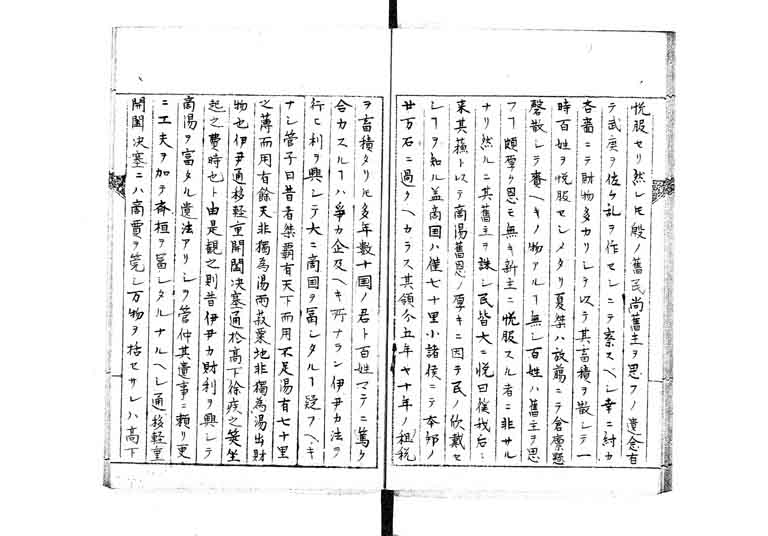 悦服セリ然レ𪜈殷ノ舊民尚舊主ヲ思フノ遺念有
テ武庚ヲ佐ケ乱ヲ作セシニテ察スベシ幸ニ紂カ
吝嗇ニテ財物多カリシテ以テ其畜積ヲ散シテ一
時百姓ヲ悦服セシメタリ夏桀ハ放蕩ニテ倉廩懸
罄散シテ賚ヘキノ物アルヿ無シ百姓ハ舊主ヲ思
フヿ頗厚ク恩モ無キ新主ニ悦服スル者ニ非サル
ナリ然ルニ其舊主ヲ誅シ民皆大ニ悦曰徯我后々
来其穌トハテ商湯舊恩ノ厚キニ因テ民ノ欣戴セ
シヿヲ知ル盖商国ハ僅七十里小諸侯ニテ本邦ノ
廿万石ニ過クヘカラス其領分五年七十年ノ租税
ヲ畜積タリ𪜈多年数十国ノ君ト百姓マテニ篤ク
合力スルヿハ爭カ企及ヘキ所ナラン伊尹カ法ヲ
行ヒ利ヲ興シテ大ニ商国ヲ冨シタルヿ疑フヘキ
ナシ管子曰昔者桀覇有天下而用不足湯有七十里
之薄而用有餘天非獨為湯雨菽粟地非獨為湯出財
物也伊尹通移軽重開闔决塞通於高下徐疾之筴坐
起之費時也ト由是観之則昔伊尹カ財利ヲ興シテ
商湯ヲ富タル遺法アリシヲ管仲其遺事ニ頼リ更
ニ工夫ヲ加テ斉桓ヲ冨シタルナルヘシ通移軽重
開闔决塞ニハ商賈ヲ筦シ万物ヲ括セサレハ高下